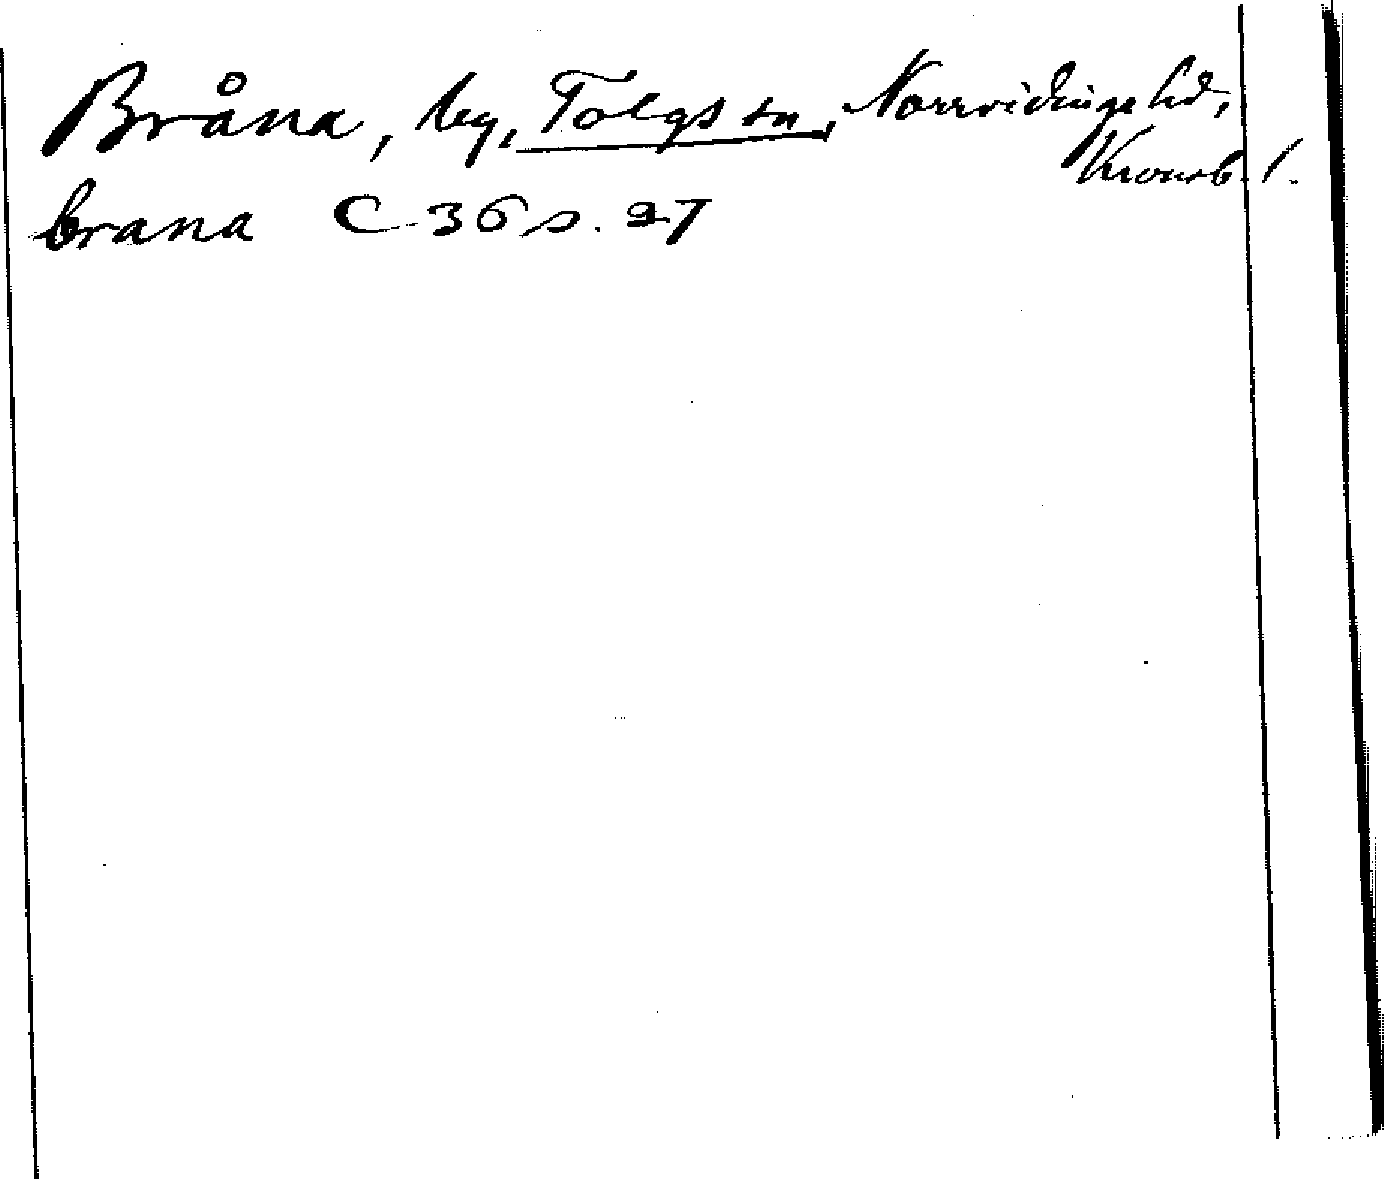 Bråna, by, Tolgs sn, Norrvidinge hd,
Kronob. l.
brana C 36 s. 27